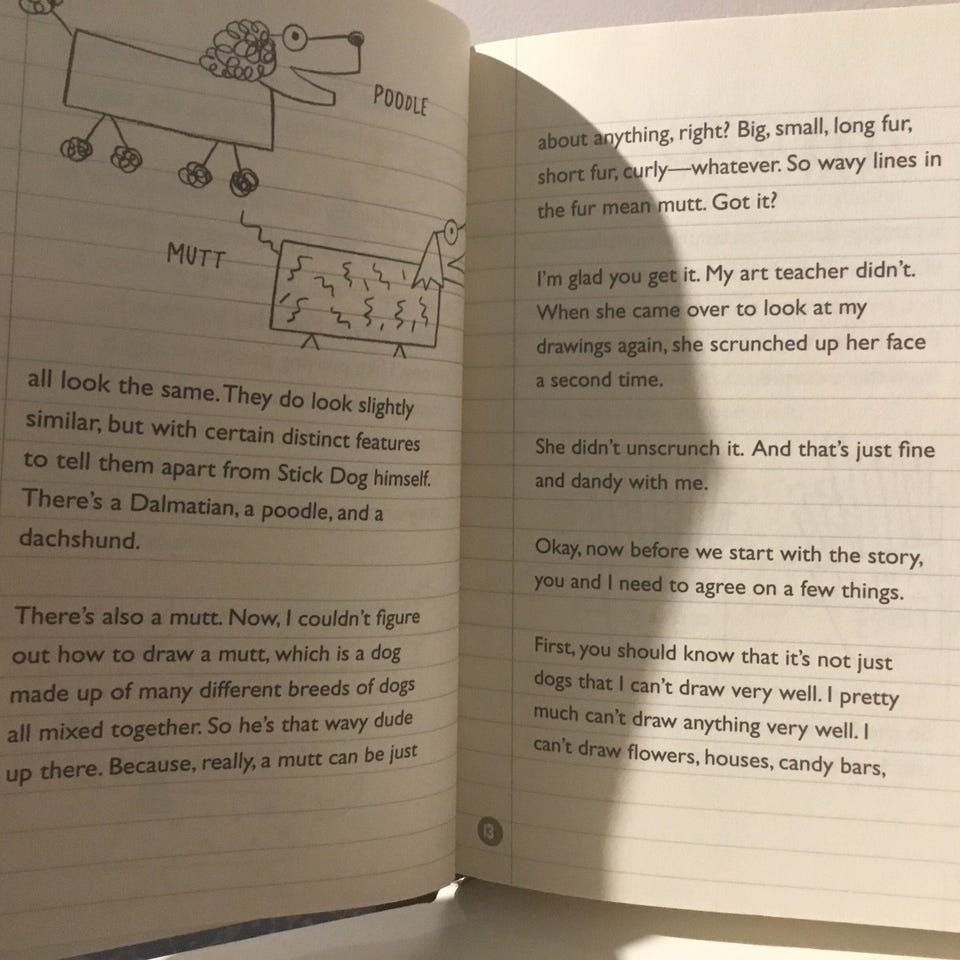 POODLE
MUTT
all look the same. They do look slightly
similar, but with certain distinct features
to tell them apart from Stick Dog himself.
There's a Dalmatian, a poodle, and a
dachshund.
There's also a mutt. Now, I couldn't figure
out how to draw a mutt, which is a dog
made up of many different breeds of dogs
all mixed together. So he's that wavy dude
up there. Because, really, a mutt can be just
about anything, right? Big, small, long fur,
short fur, curly—whatever. So wavy lines in
the fur mean mutt. Got it?
I'm glad you get it. My art teacher didn't.
When she came over to look at my
drawings again, she scrunched up her face
a second time.
She didn't unscrunch it. And that's just fine
and dandy with me.
Okay, now before we start with the story,
you and I need to agree on a few things.
First, you should know that it's not just
dogs that I can't draw very well. I pretty
much can't draw anything very well. I
can't draw flowers, houses, candy bars,
13